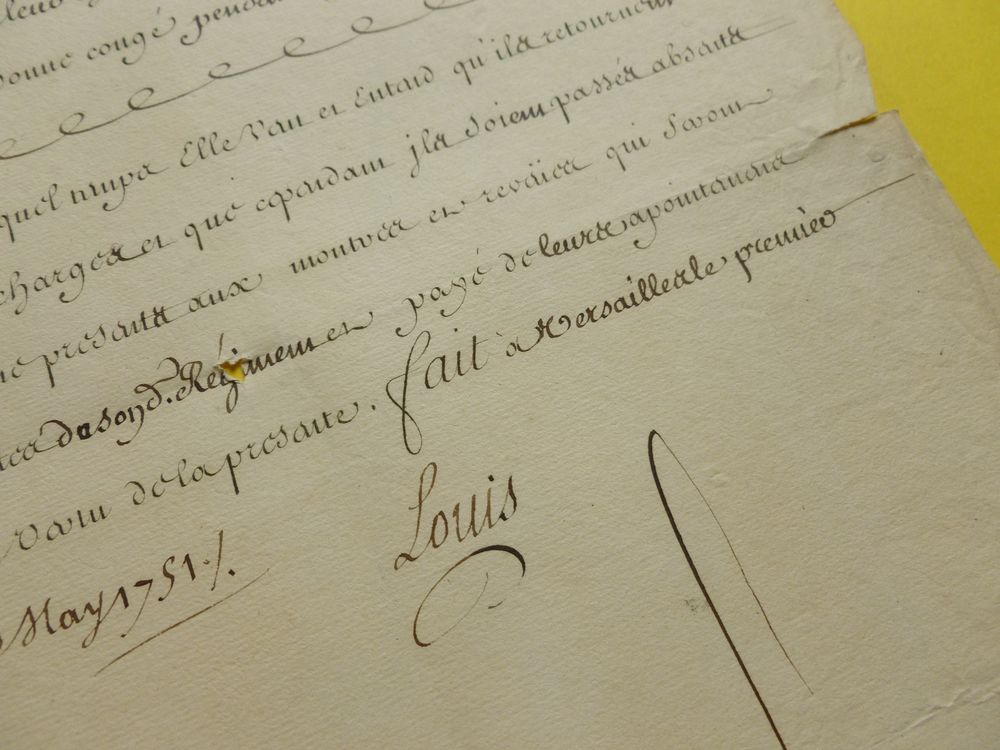 donne congé pendant
quel temps Elle Veut et Entend qu'ils retournent
charges et que cependant jls soient passés absents
presents aux montres et revües qui seront
de son d. Régiment et payé de leurs apointements
vertu de la presente. fait à Versailles le premier
May 1751 ./.
Louis